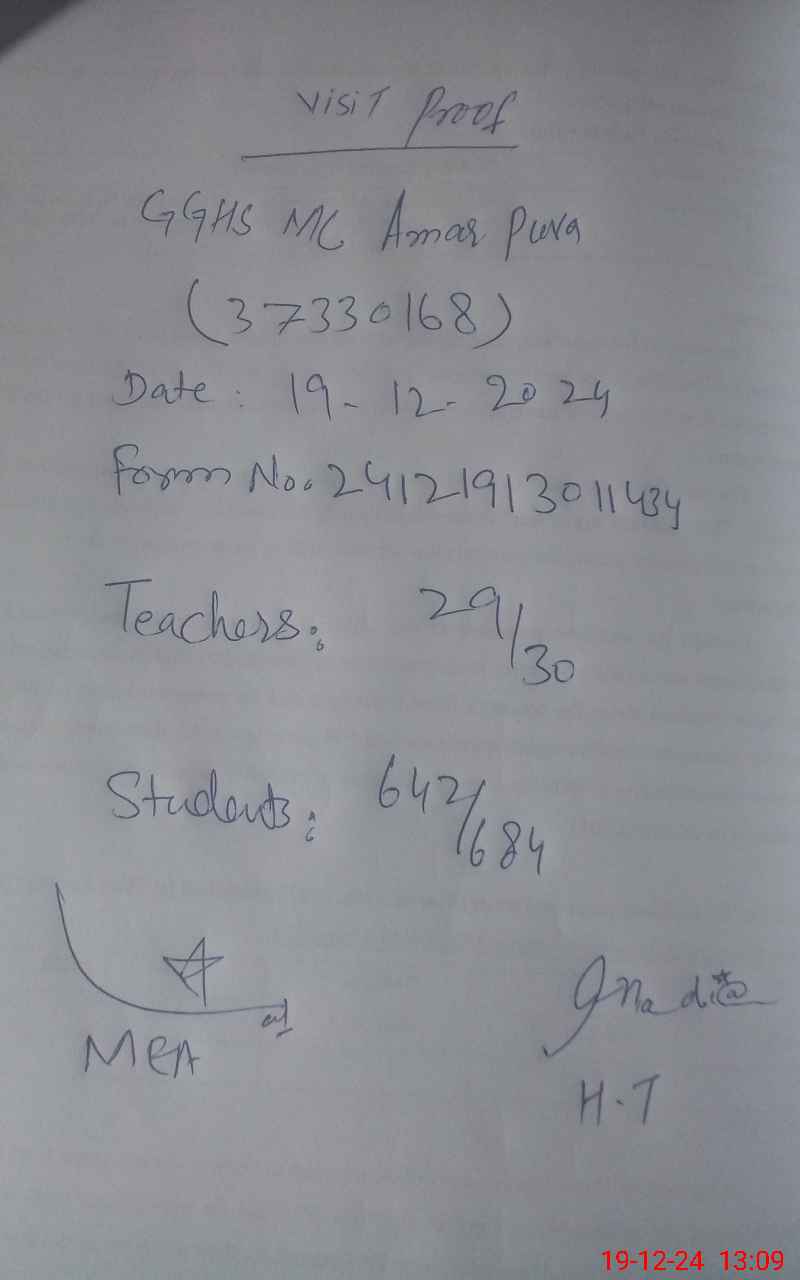 Visit Proof
GGHS MC Amar Pura
(37330168)
Date: 19-12-2024
Form No. 24121913011434
Teachers: 29/30
Students: 642/684
MEA
H.T
19-12-24 13:09